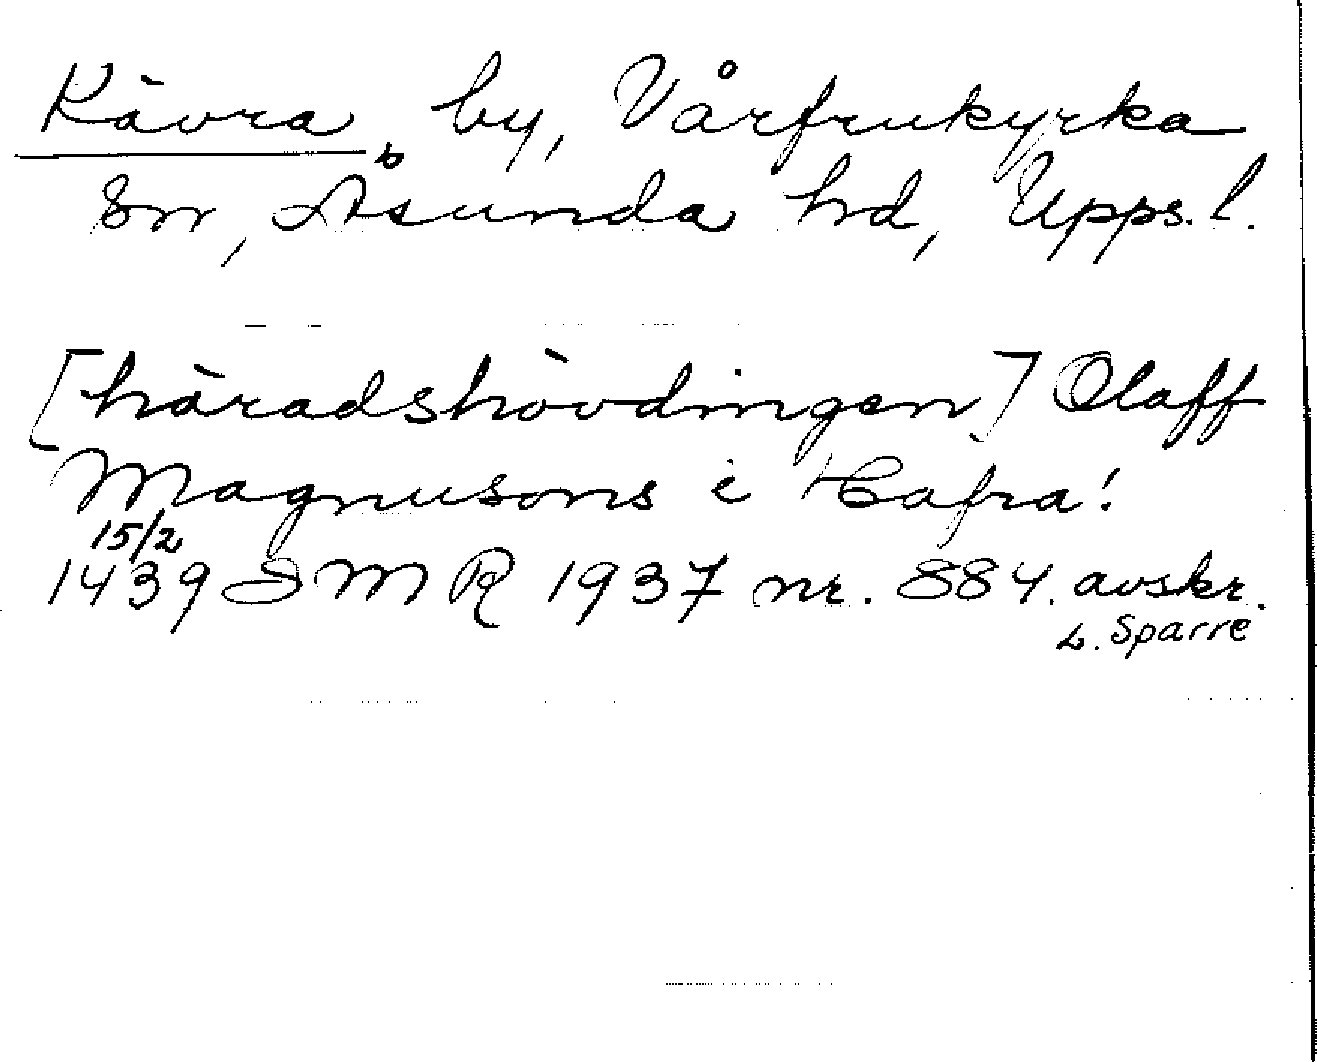 Kävra, by, Vårfrukyrka
sn, Åsunda hd, Upps. l.
[häradshövdingen] Olaff
Magnusons i Kafra!
15/2
1439 SMR 1937 nr. 884. avskr.
L. Sparre